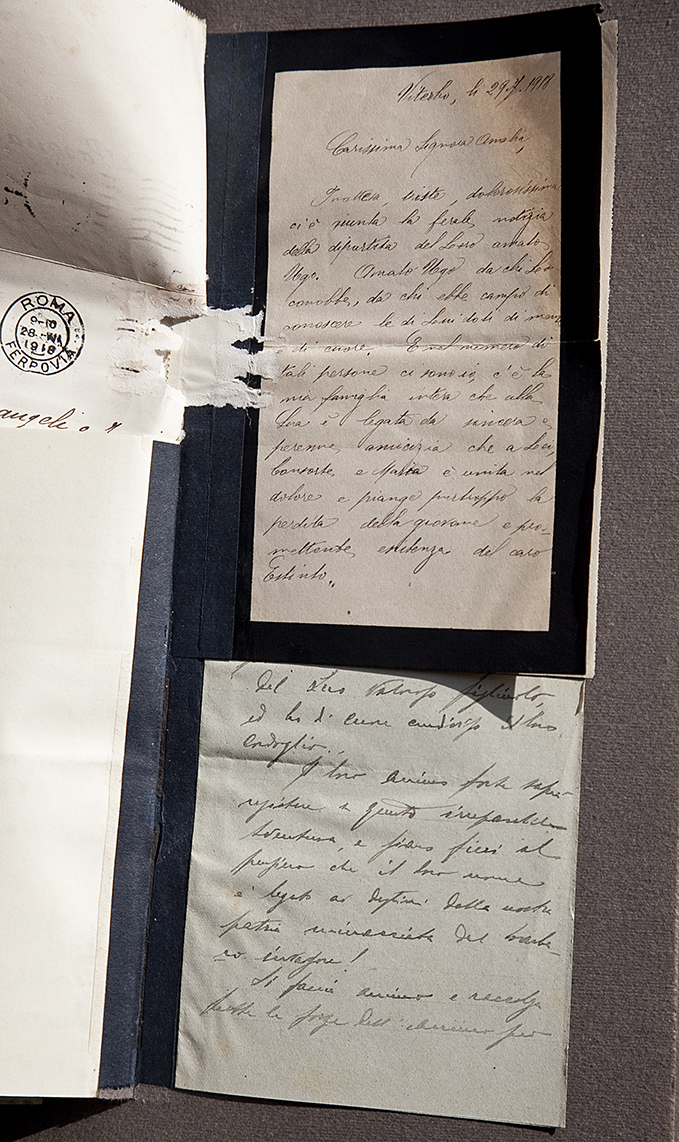 ROMA
9-10
28.VII
1918
FERROVIA
angeli o
Viterbo, li 29.7.1918
Carissima Signora Amalia,
Inattesa, triste, dolorosissima
ci è giunta la ferale notizia
della dipartita del Loro amato
Ugo. Amato Ugo da chi Lo
conobbe, da chi ebbe campo di
conoscere le di Lui doti di mente
e di cuore. E nel numero di
tali persone ci sono io, c'è la
mia famiglia intera che alla
Sua è legata da sincera e
perenne amicizia che a Lei,
Consorte e Maria è unita nel
dolore e piange purtroppo la
perdita della giovane e pro-
mettente esistenza del caro
Estinto.
del Suo valoroso figliuolo,
ed ho di cuore condiviso il loro
cordoglio.
Il loro animo forte sapra
resistere a questa irreparabile
sventura, e siano fieri al
pensiero che il loro nome
è legato ai destini della nostra
patria minacciata dal barba-
ro
Si facci animo e raccolga
tutte le forze dell'animo per